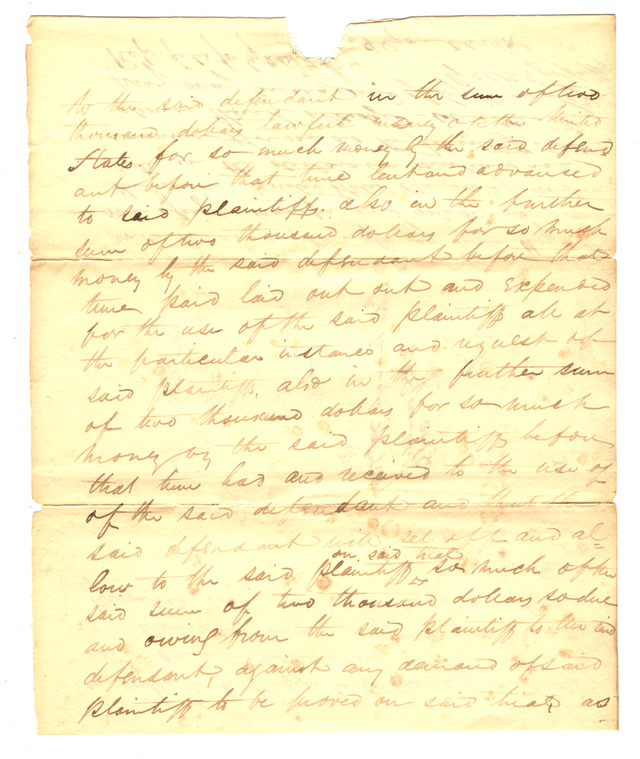 to the said defendant in the sum of two
thousand dollars lawful money of the United
States for so much money by the said defend
ant before that time lent and advanced
to said plaintiffs. also in the further
sum of two thousand dollars for so much
money by the said defendant before that
time paid laid out out and expended
for the use of the said plaintiffs all at
the particular instance and request of
said plaintiffs, also in the further sum
of two thousand dollars for so much
money by the said plaintiffs before
that time had and received to the use of
of the said defendant and that the
said defendant will set off and al=
on said trial
low to the said plaintiffs so much of the
said sum of two thousand dollars so due
and owing from the said plaintiffs to the said
defendant, against any demand of said
plaintiffs to be proved on said trial, as